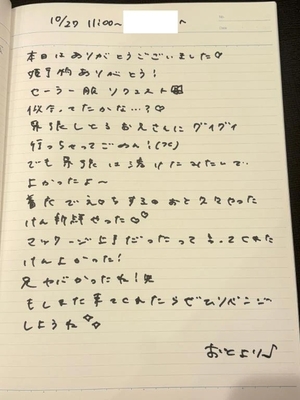 10/27 11:00〜 〜
本日はありがとうございました♡
ありがとう!
セーラー服 リクエスト
似合ってたかな…?♡
緊張してるお兄さんにグイグイ
行っちゃってごめん!(笑)
でも緊張は溶けたみたいで
よかったよ〜
でえ○ちするのおと久々やった
けん新鮮やった♡♡
マッサージ上手だったって言ってくれた
けんよかった!
ヤバかったね!笑
もしまた来てくれたらぜひリベンジ
しようね♡♡
おとより♪